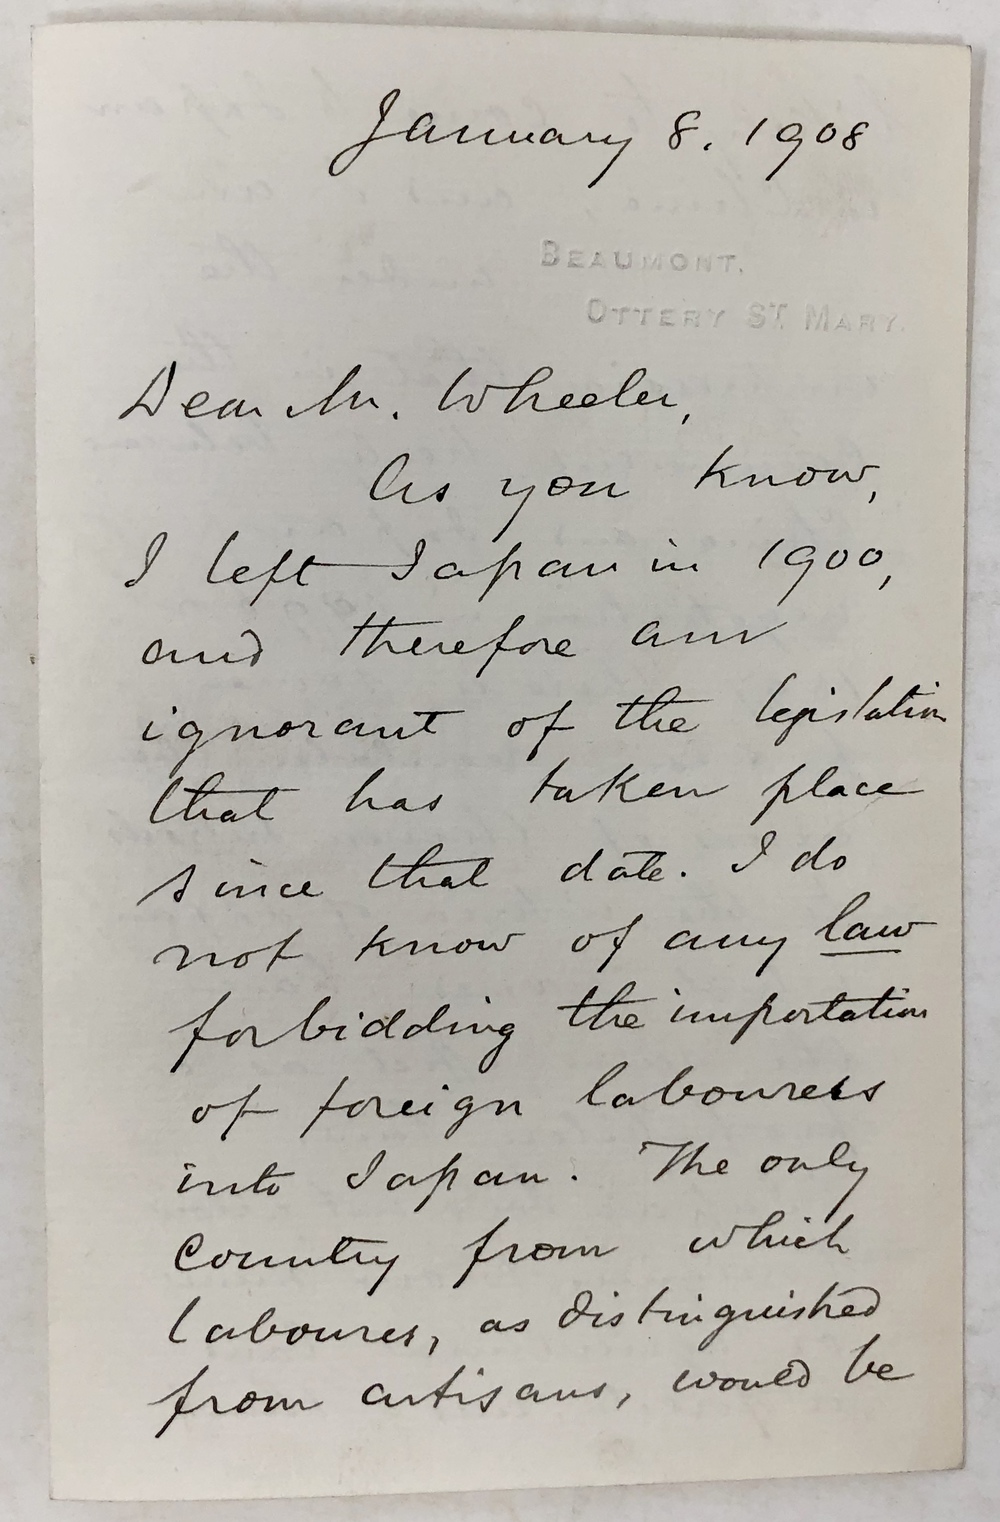 January 8. 1908
BEAUMONT.
OTTERY ST. MARY.
Dear Mr. Wheeler,
As you know,
I left Japan in 1900,
and therefore am
ignorant of the legislation
that has taken place
since that date. I do
not know of any law
forbidding the importation
of foreign labourers
into Japan. The only
country from which
labourers, as distinguished
from artisans, would be